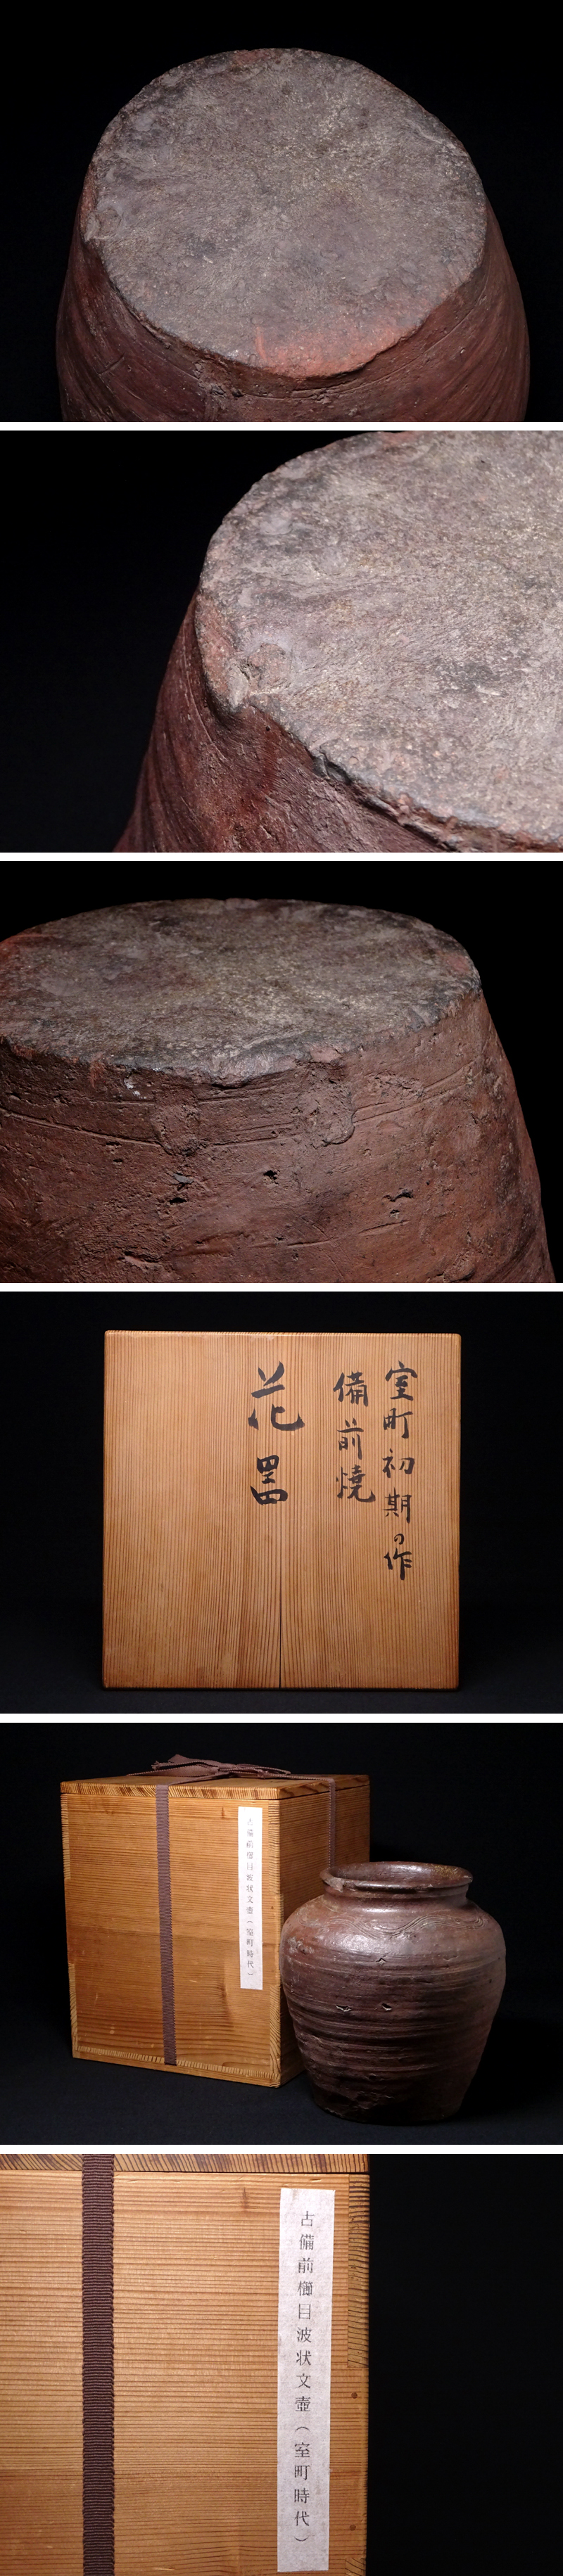 室町初期の作
備前焼
花器
古備前櫛目波状文壺（室町時代）
古備前櫛目波状文壺（室町時代）